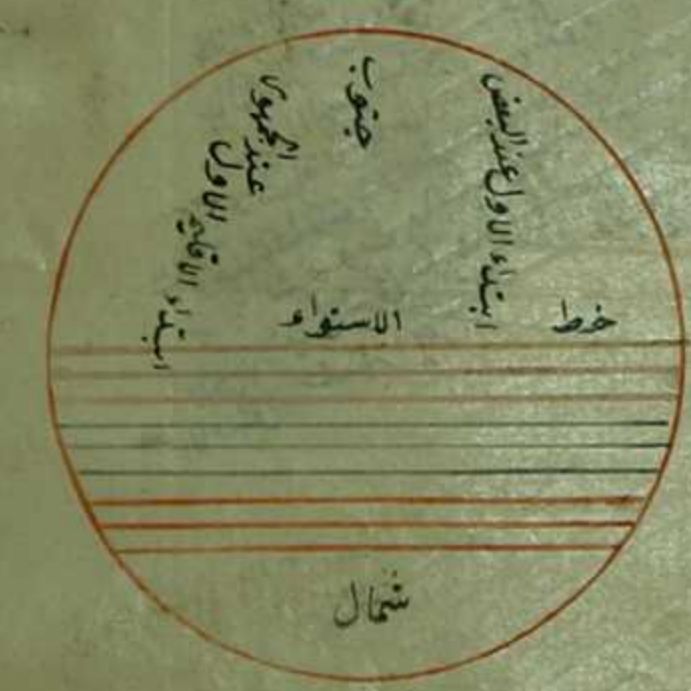 جنوب
ابتداء الاول عند البعض
ابتداء الاقليم الاول
عند الجمهور
خط الاستواء
شمال